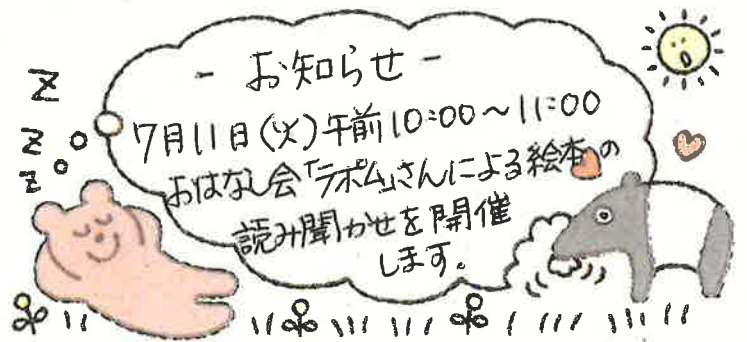 - お知らせ -
7月11日(火)午前10:00～11:00
おはなし会「ラポム」さんによる絵本の
読み聞かせを開催
します。
Z
Z
Z